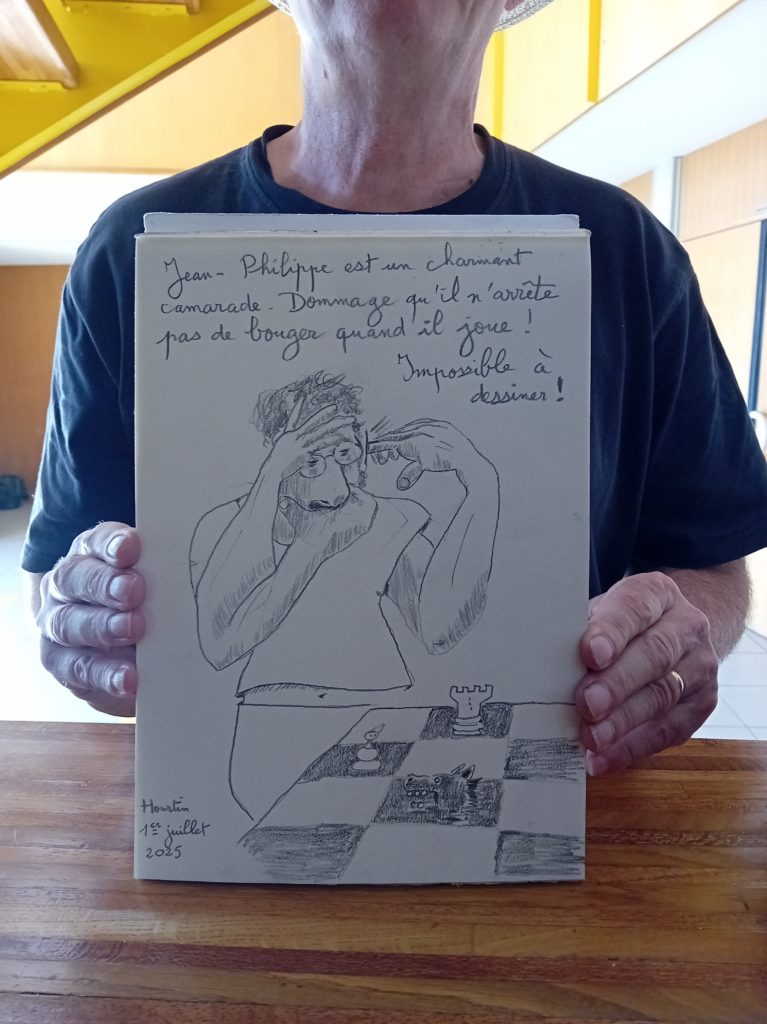 Jean-Philippe est un charmant
camarade. Dommage qu'il n'arrête
pas de bouger quand il joue !
Impossible à
dessiner !
Hourtin
1er juillet
2025